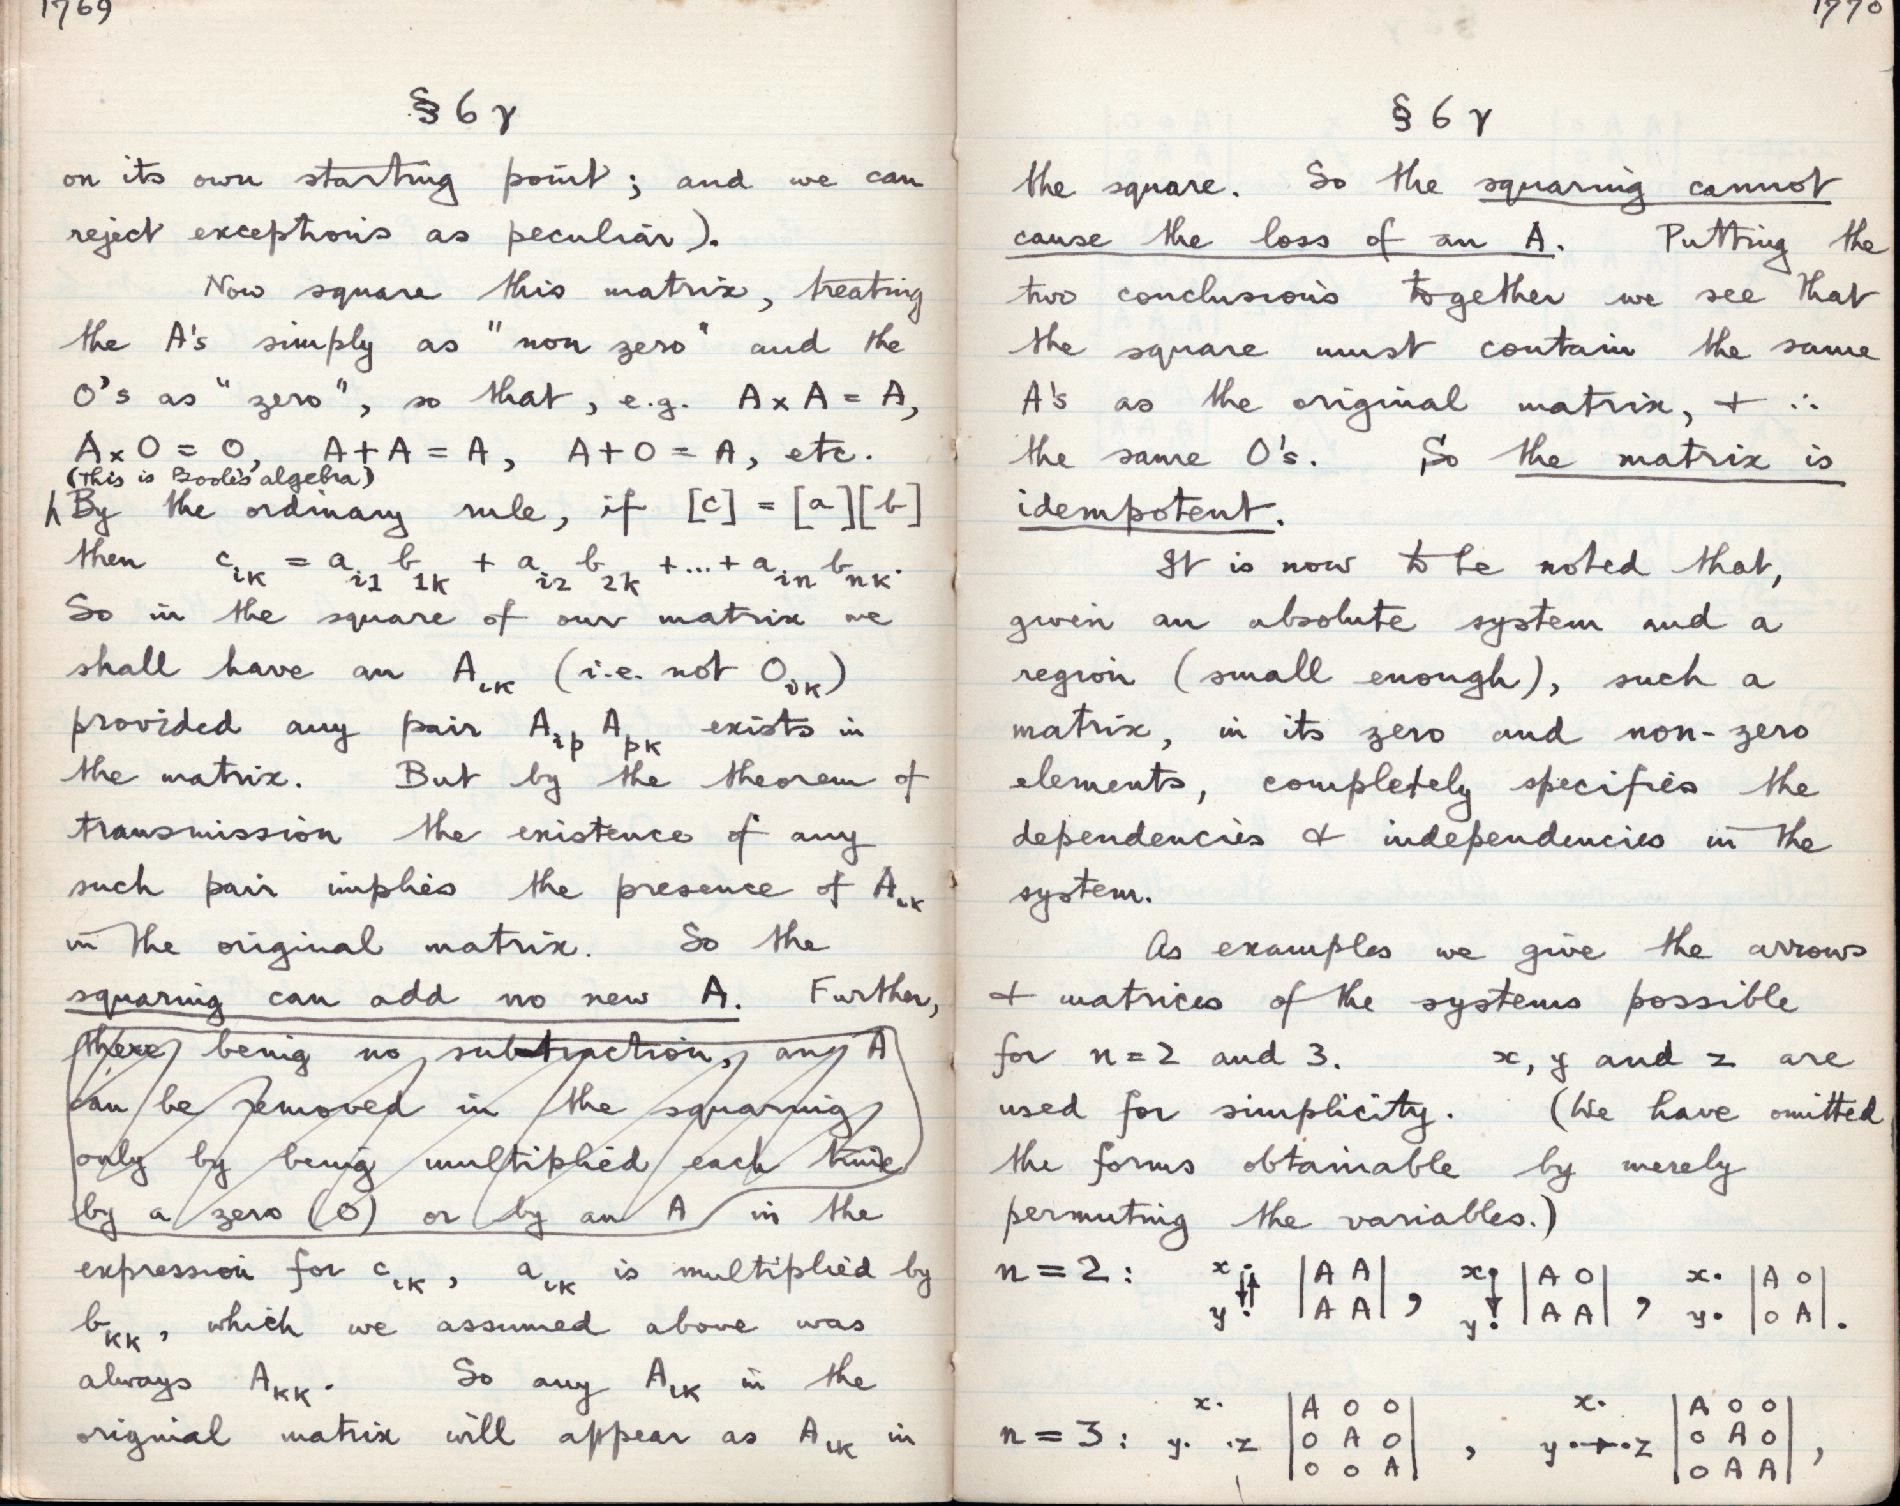 1769
§ 6 γ
on its own starting point ; and we can
reject exceptions as peculiar).
Now square this matrix, treating
the A's simply as "non zero" and the
0's as "zero", so that, e.g. A x A = A,
A x 0 = 0, A + A = A, A + 0 = A, etc.
(This is Boole's algebra)
By the ordinary rule, if [c] = [a][b]
then c_ik = a_i1 b_1k + a_i2 b_2k + ... + a_in b_nk.
So in the square of our matrix we
shall have an A_ik (i.e. not 0_ik)
provided any pair A_ip A_pk exists in
the matrix. But by the theorem of
transmission the existence of any
such pair implies the presence of A_ik
in the original matrix. So the
squaring can add no new A. Further,
there being no subtraction, any A
can be removed in the squaring
only by being multiplied each time
by a zero (0) or by an A in the
expression for c_ik, a_ik is multiplied by
b_kk, which we assumed above was
always A_kk. So any A_ik in the
original matrix will appear as A_ik in
1770
§ 6 γ
the square. So the squaring cannot
cause the loss of an A. Putting the
two conclusions together we see that
the square must contain the same
A's as the original matrix, + ∴
the same 0's. So the matrix is
idempotent.
It is now to be noted that,
given an absolute system and a
region (small enough), such a
matrix, in its zero and non-zero
elements, completely specifies the
dependencies + independencies in the
system.
As examples we give the arrows
+ matrices of the systems possible
for n=2 and 3. x, y and z are
used for simplicity. (We have omitted
the forms obtainable by merely
permuting the variables.)
n = 2 : x. |A A| x. |A 0| x. |A 0|
y. |A A| , y. |A A| , y. |0 A| .
x. |A 0 0| x. |A 0 0|
n = 3 : y. .z |0 A 0| , y .→. z |0 A 0| ,
|0 0 A| |0 A A|